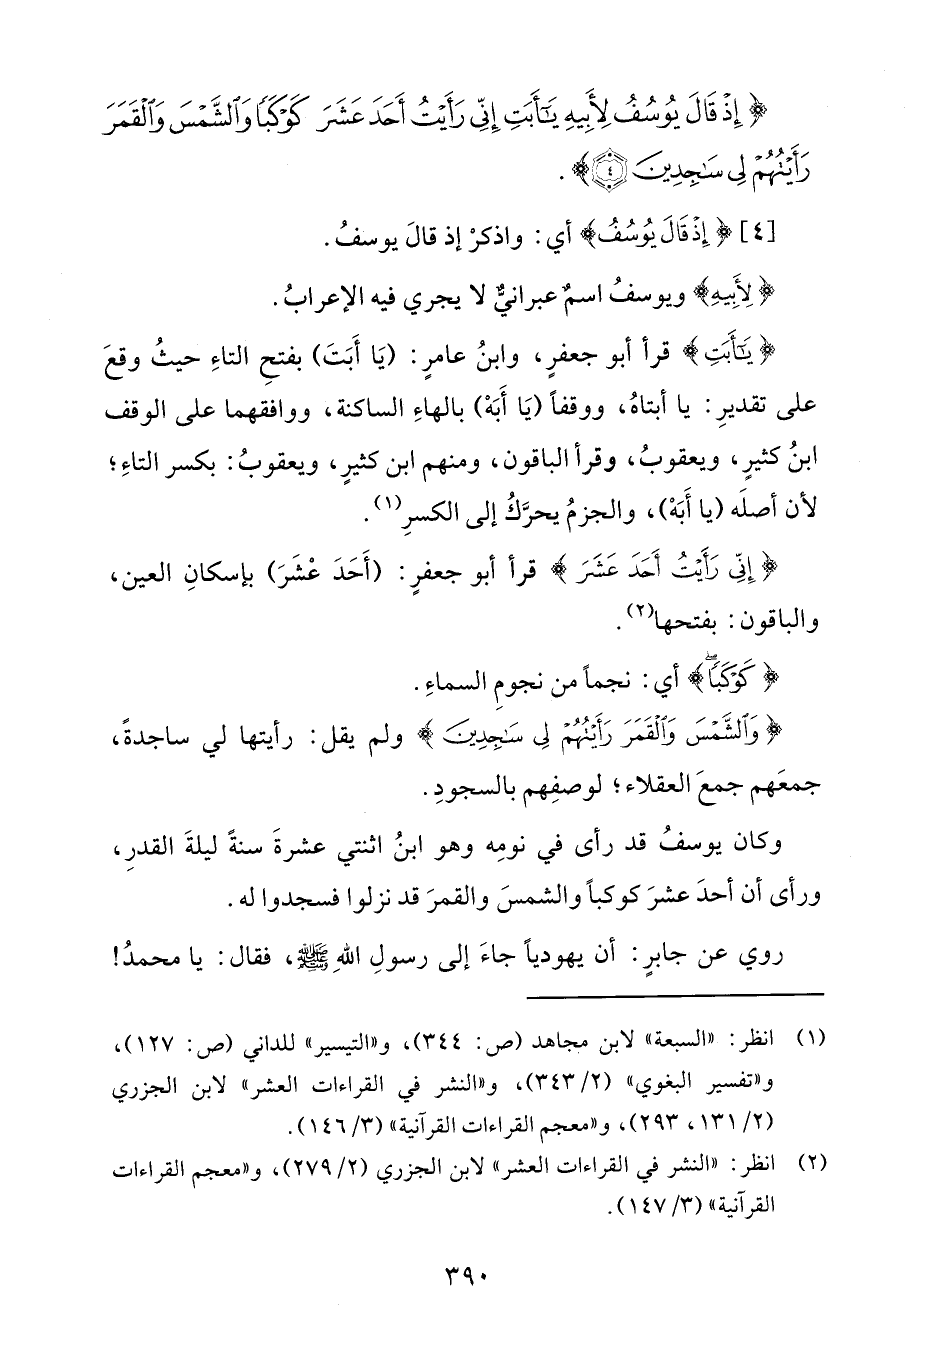 ﴿إِذْ قَالَ يُوسُفُ لِأَبِيهِ يَـٰٓأَبَتِ إِنِّي رَأَيْتُ أَحَدَ عَشَرَ كَوْكَبًا وَالشَّمْسَ وَالْقَمَرَ
رَأَيْتُهُمْ لِي سَـٰجِدِينَ ﴿٤﴾﴾.
[٤] ﴿إِذْ قَالَ يُوسُفُ﴾ أي: واذكرْ إذ قالَ يوسفُ.
﴿لِأَبِيهِ﴾ ويوسفُ اسمٌ عبرانيٌّ لا يجري فيه الإعرابُ.
﴿يَـٰٓأَبَتِ﴾ قرأ أبو جعفرٍ، وابنُ عامرٍ: (يَا أَبَتَ) بفتحِ التاءِ حيثُ وقعَ
على تقديرِ: يا أبتاهُ، ووقفاً (يَا أَبَهْ) بالهاءِ الساكنة، ووافقهما على الوقف
ابنُ كثيرٍ، ويعقوبُ، وقرأ الباقون، ومنهم ابن كثيرٍ، ويعقوبُ: بكسر التاءِ؛
لأن أصلَه (يا أَبَهْ)، والجزمُ يحرَّكُ إلى الكسرِ(١).
﴿إِنِّي رَأَيْتُ أَحَدَ عَشَرَ﴾ قرأ أبو جعفرٍ: (أَحَدَ عْشَرَ) بإسكانِ العين،
والباقون: بفتحها(٢).
﴿كَوْكَبًا﴾ أي: نجماً من نجومِ السماءِ.
﴿وَالشَّمْسَ وَالْقَمَرَ رَأَيْتُهُمْ لِي سَـٰجِدِينَ﴾ ولم يقل: رأيتها لي ساجدةً،
جمعَهم جمعَ العقلاء؛ لوصفِهم بالسجودِ.
وكان يوسفُ قد رأى في نومِه وهو ابنُ اثنتي عشرةَ سنةً ليلةَ القدرِ،
ورأى أن أحدَ عشرَ كوكباً والشمسَ والقمرَ قد نزلوا فسجدوا له.
روي عن جابرٍ: أن يهودياً جاءَ إلى رسولِ اللهِ ﷺ، فقال: يا محمدُ!
(١) انظر: «السبعة» لابن مجاهد (ص: ٣٤٤)، و«التيسير» للداني (ص: ١٢٧)،
و«تفسير البغوي» (٢/ ٣٤٣)، و«النشر في القراءات العشر» لابن الجزري
(٢/ ١٣١، ٢٩٣)، و«معجم القراءات القرآنية» (٣/ ١٤٦).
(٢) انظر: «النشر في القراءات العشر» لابن الجزري (٢/ ٢٧٩)، و«معجم القراءات
القرآنية» (٣/ ١٤٧).
٣٩٠